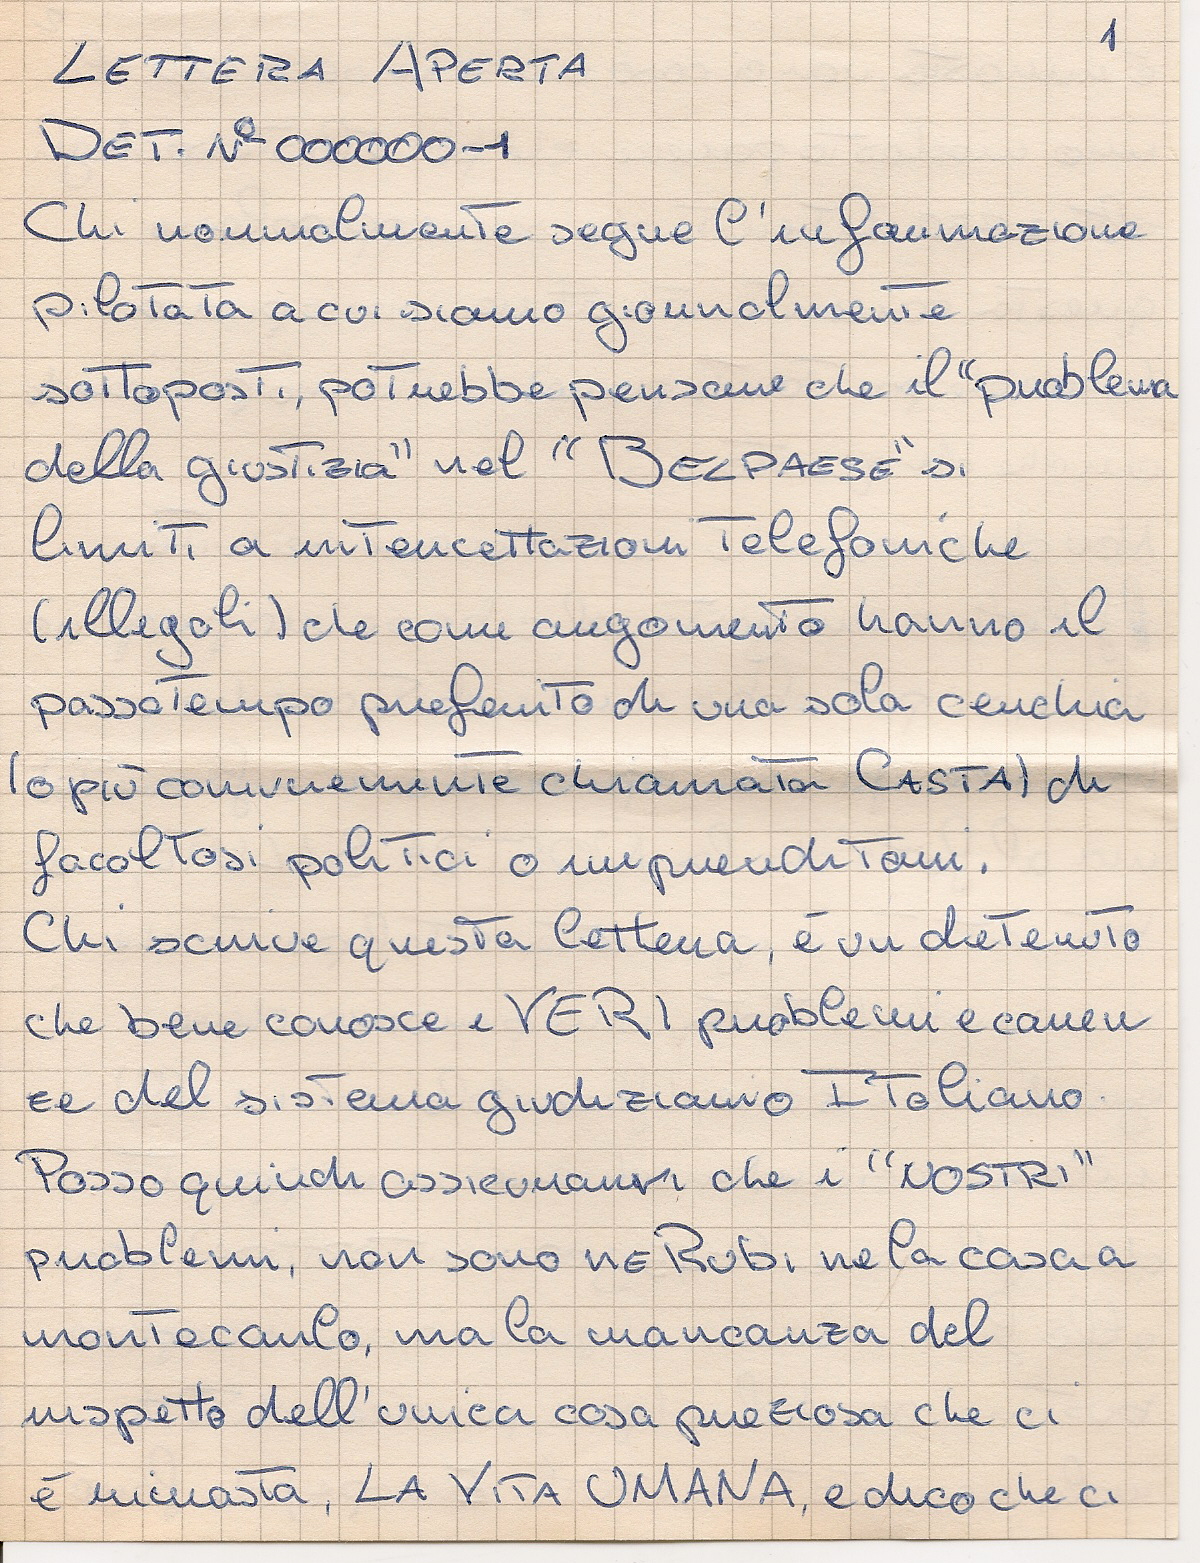 1
LETTERA APERTA
DET. Nº 000000-1
Chi normalmente segue l'informazione
pilotata a cui siamo giornalmente
sottoposti, potrebbe pensare che il "problema
della giustizia" nel "BELPAESE" si
limiti a intercettazioni telefoniche
(illegali) che come argomento hanno il
passatempo preferito di una sola cerchia
(o più comunemente chiamata CASTA) di
facoltosi politici o imprenditori.
Chi scrive questa lettera, è un detenuto
che bene conosce i VERI problemi e caren
ze del sistema giudiziario Italiano.
Posso quindi assicurarvi che i "NOSTRI"
problemi, non sono nE Rubi ne la casa a
montecarlo, ma la mancanza del
rispetto dell'unica cosa preziosa che ci
è rimasta, LA VITA UMANA, e dico che ci